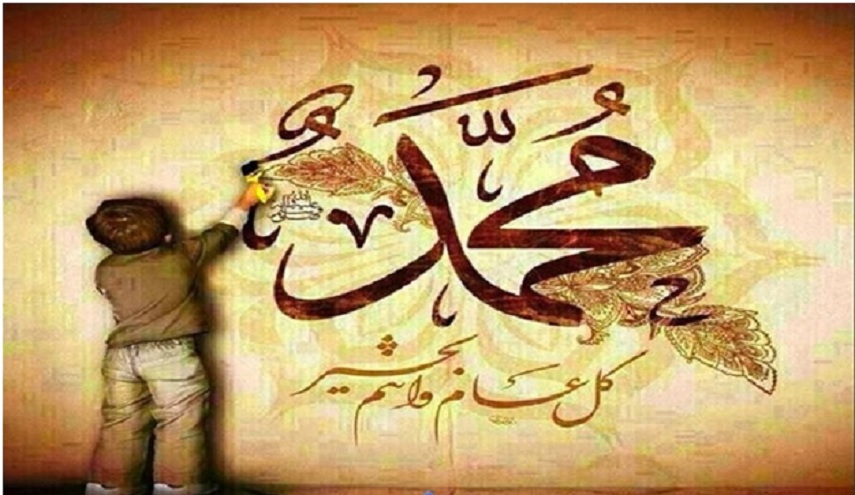 مُحَمَّدٌ
صلى الله عليه وسلم
كل عام وانتم بخير